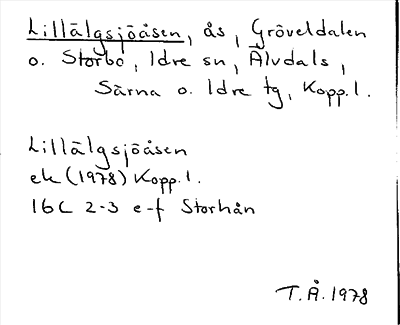 Lillälgsjöåsen, ås, Gröveldalen
o. Storbo, Idre sn, Älvdals,
Särna o. Idre tg, Kopp.l.
Lillälgsjöåsen
ek (1978) Kopp.l.
16C 2-3 e-f Storhån
T.Å. 1978